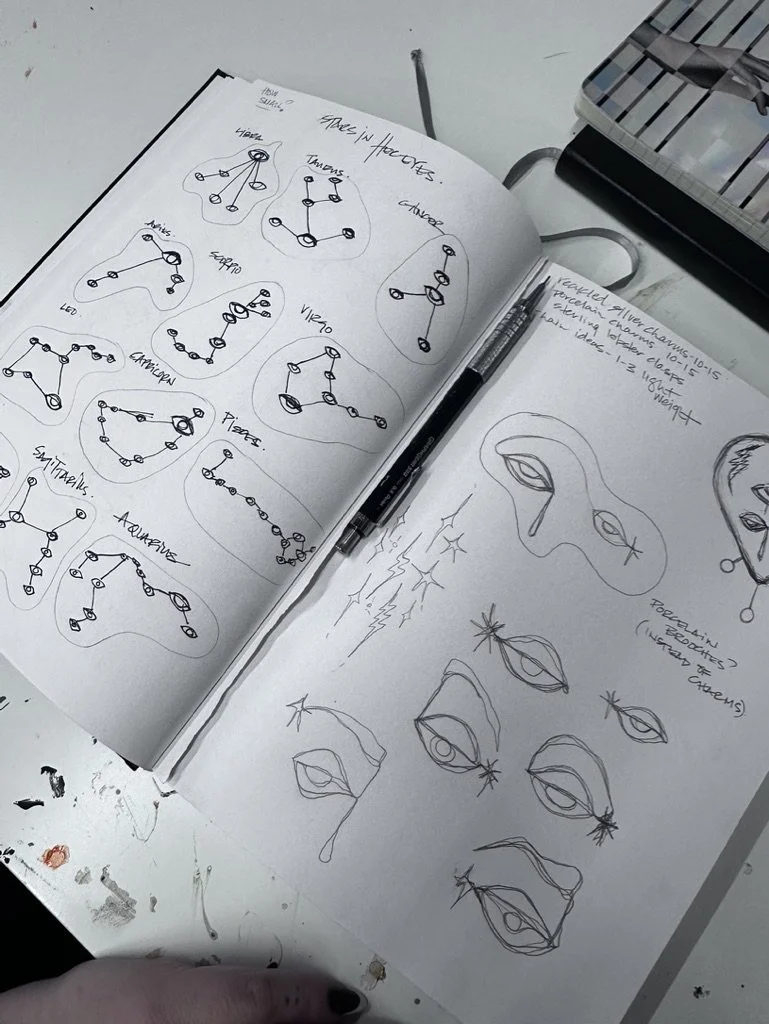 HOW
SMALL?
STARS IN HER EYES.
LIBRA
TAURUS.
CANCER
ARIES
SCORPIO
VIRGO
LEO
CAPRICORN
PISCES.
SAGITTARIUS.
AQUARIUS
recycled silver charms-10-15.
porcelain charms 10-15
sterling lobster clasps
chain ideas - 1-3 light
weight
PORCELAIN
BROOCHES?
(INSTEAD OF
CHARMS)